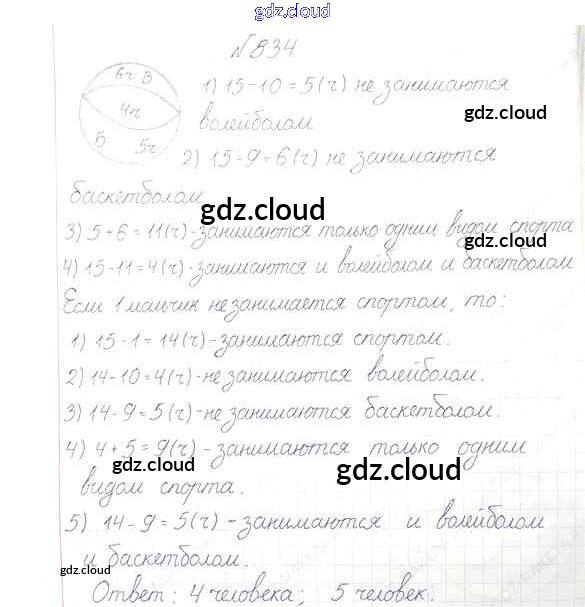 gdz.cloud
№834
6ч В
4ч
Б 5ч
1) 15-10=5(ч) не занимаются
gdz.cloud
волейболом
2) 15-9=6(ч) не занимаются
gdz.cloud
баскетболом
gdz.cloud
3) 5+6=11(ч)-занимаются только одним видом спорта
gdz.cloud
4) 15-11=4(ч)-занимаются и волейболом и баскетболом
Если 1 мальчик не занимается спортом, то:
1) 15-1=14(ч)-занимаются спортом.
2) 14-10=4(ч)-не занимаются волейболом.
3) 14-9=5(ч)-не занимаются баскетболом.
4) 4+5=9(ч)-занимаются только одним
gdz.cloud gdz.cloud
видом спорта.
5) 14-9=5(ч)-занимаются и волейболом
и баскетболом.
gdz.cloud
Ответ: 4 человека; 5 человек.
gdz.cloud